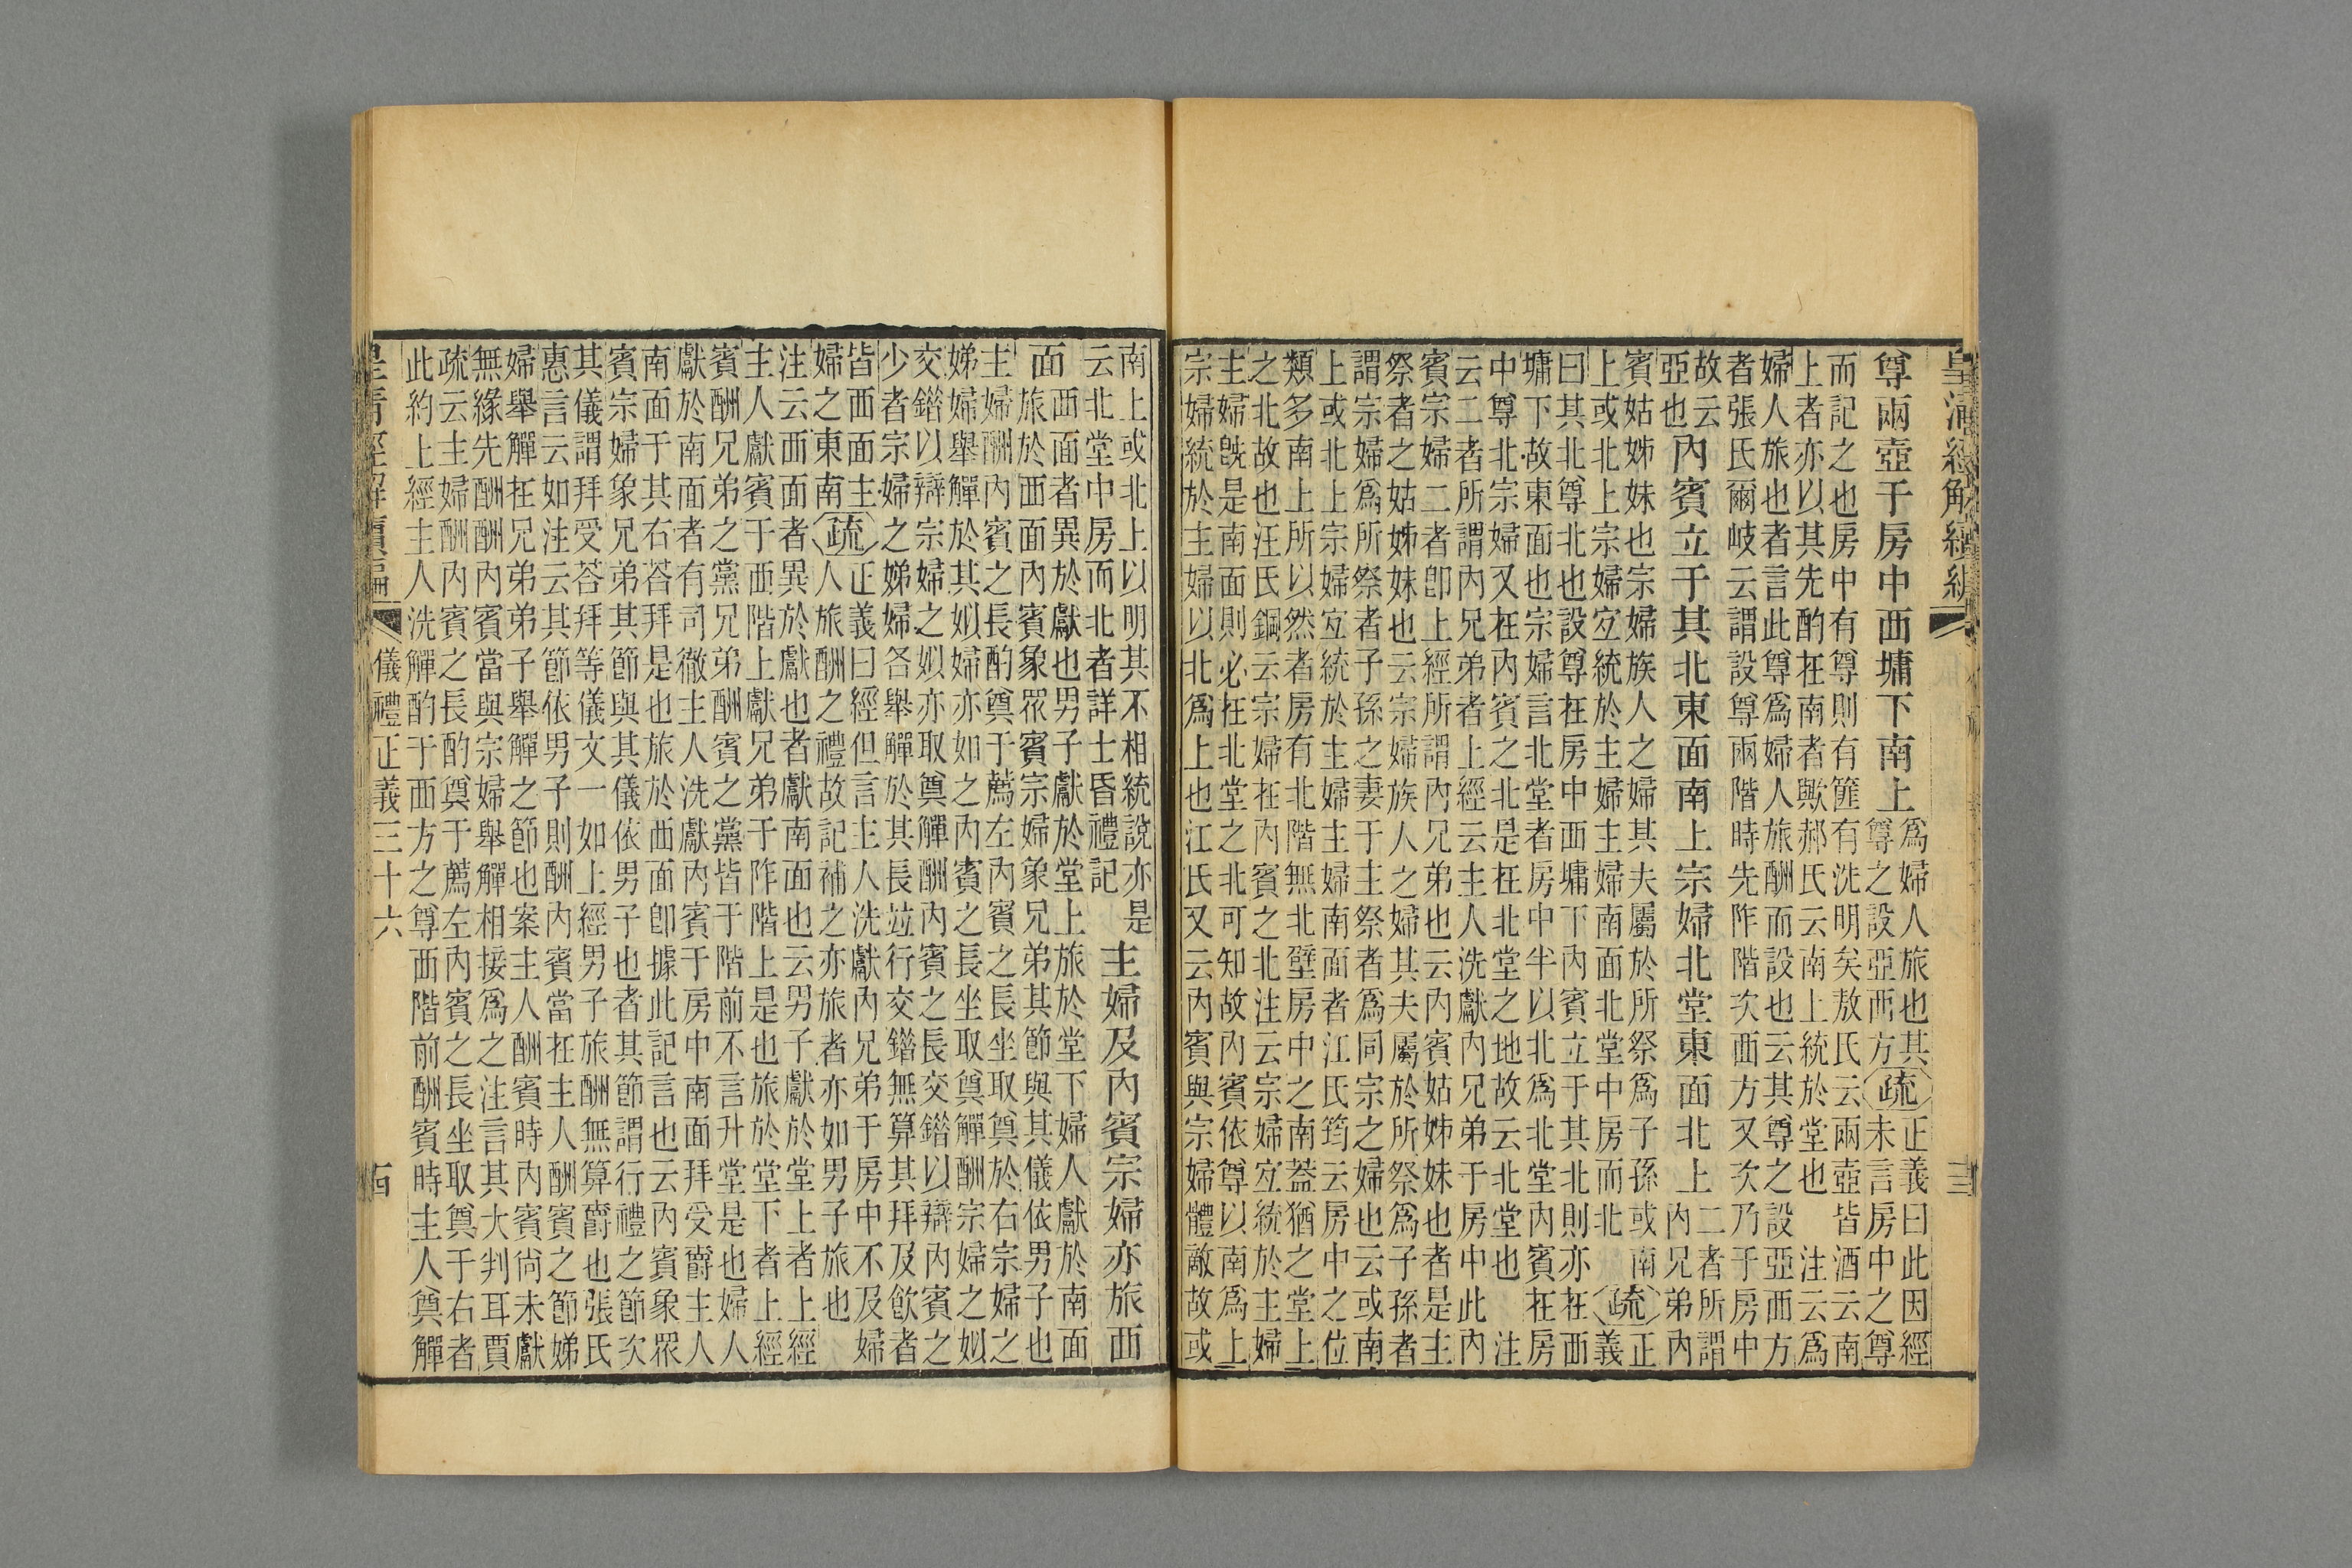 皇清經解續編 三
尊兩壺于房中西墉下南上
為婦人旅也其
尊之設亞西方
疏
正義曰此因經
未言房中之尊
而記之也房中有尊則有篚有洗明矣敖氏云兩壺皆酒云南
上者亦以其先酌在南者歟郝氏云南上統於堂也 注云為
婦人旅也者言此尊為婦人旅酬而設也云其尊之設亞西方
者張氏爾岐云謂設尊兩階時先阼階次西方又次乃于房中
故云
亞也
內賓立于其北東面南上宗婦北堂東面北上
二者所謂
內兄弟內
賓姑姊妹也宗婦族人之婦其夫屬於所祭為子孫或南
上或北上宗婦宜統於主婦主婦南面北堂中房而北
疏
正
義
曰其北尊北也設尊在房中西墉下內賓立于其北則亦在西
墉下故東面也宗婦言北堂者房中半以北為北堂內賓在房
中尊北宗婦又在內賓之北是在北堂之地故云北堂也 注
云二者所謂內兄弟者上經云主人洗獻內兄弟于房中此內
賓宗婦二者卽上經所謂內兄弟也云內賓姑姊妹也者是主
祭者之姑姊妹也云宗婦族人之婦其夫屬於所祭為子孫者
謂宗婦為所祭者子孫之妻于主祭者為同宗之婦也云或南
上或北上宗婦宜統於主婦主婦南面者江氏筠云房中之位
類多南上所以然者房有北階無北壁房中之南蓋猶之堂上
之北故也汪氏鋼云宗婦在內賓之北注云宗婦宜統於主婦
主婦旣是南面則必在北堂之北可知故內賓依尊以南為上
宗婦統於主婦以北為上也江氏又云內賓與宗婦體敵故或
南上或北上以明其不相統說亦是
云北堂中房而北者詳士昏禮記
主婦及內賓宗婦亦旅西
面
西面者異於獻也男子獻於堂上旅於堂下婦人獻於南面
旅於西面內賓象眾賓宗婦象兄弟其節與其儀依男子也
主婦酬內賓之長酌奠于薦左內賓之長坐取奠於右宗婦之
娣婦舉觶於其姒婦亦如之內賓之長坐取奠觶酬宗婦之姒
交錯以辯宗婦之姒亦取奠觶酬內賓之長交錯以辯內賓之
少者宗婦之娣婦各舉觶於其長竝行交錯無算其拜及飮者
皆西面主
婦之東南
疏
正義曰經但言主人洗獻內兄弟于房中不及婦
人旅酬之禮故記補之亦旅者亦如男子旅也
注云西面者異於獻也者獻南面也云男子獻於堂上者上經
主人獻賓于西階上獻兄弟于阼階上是也旅於堂下者上經
賓酬兄弟之黨兄弟酬賓之黨皆于階前不言升堂是也婦人
獻於南面者有司徹主人洗獻內賓于房中南面拜受爵主人
南面于其右荅拜是也旅於西面卽據此記言也云內賓象眾
賓宗婦象兄弟其節與其儀依男子也者其節謂行禮之節次
其儀謂拜受荅拜等儀文一如上經男子旅酬無算爵也張氏
惠言云如注云其節依男子則酬內賓當在主人酬賓之節娣
婦舉觶在兄弟弟子舉觶之節也案主人酬賓時內賓尙未獻
無緣先酬酬內賓當與宗婦舉觶相接為之注言其大判耳賈
疏云主婦酬內賓之長酌奠于薦左內賓之長坐取奠于右者
此約上經主人洗觶酌于西方之尊西階前酬賓時主人奠觶
皇清經解續編 儀禮正義三十六